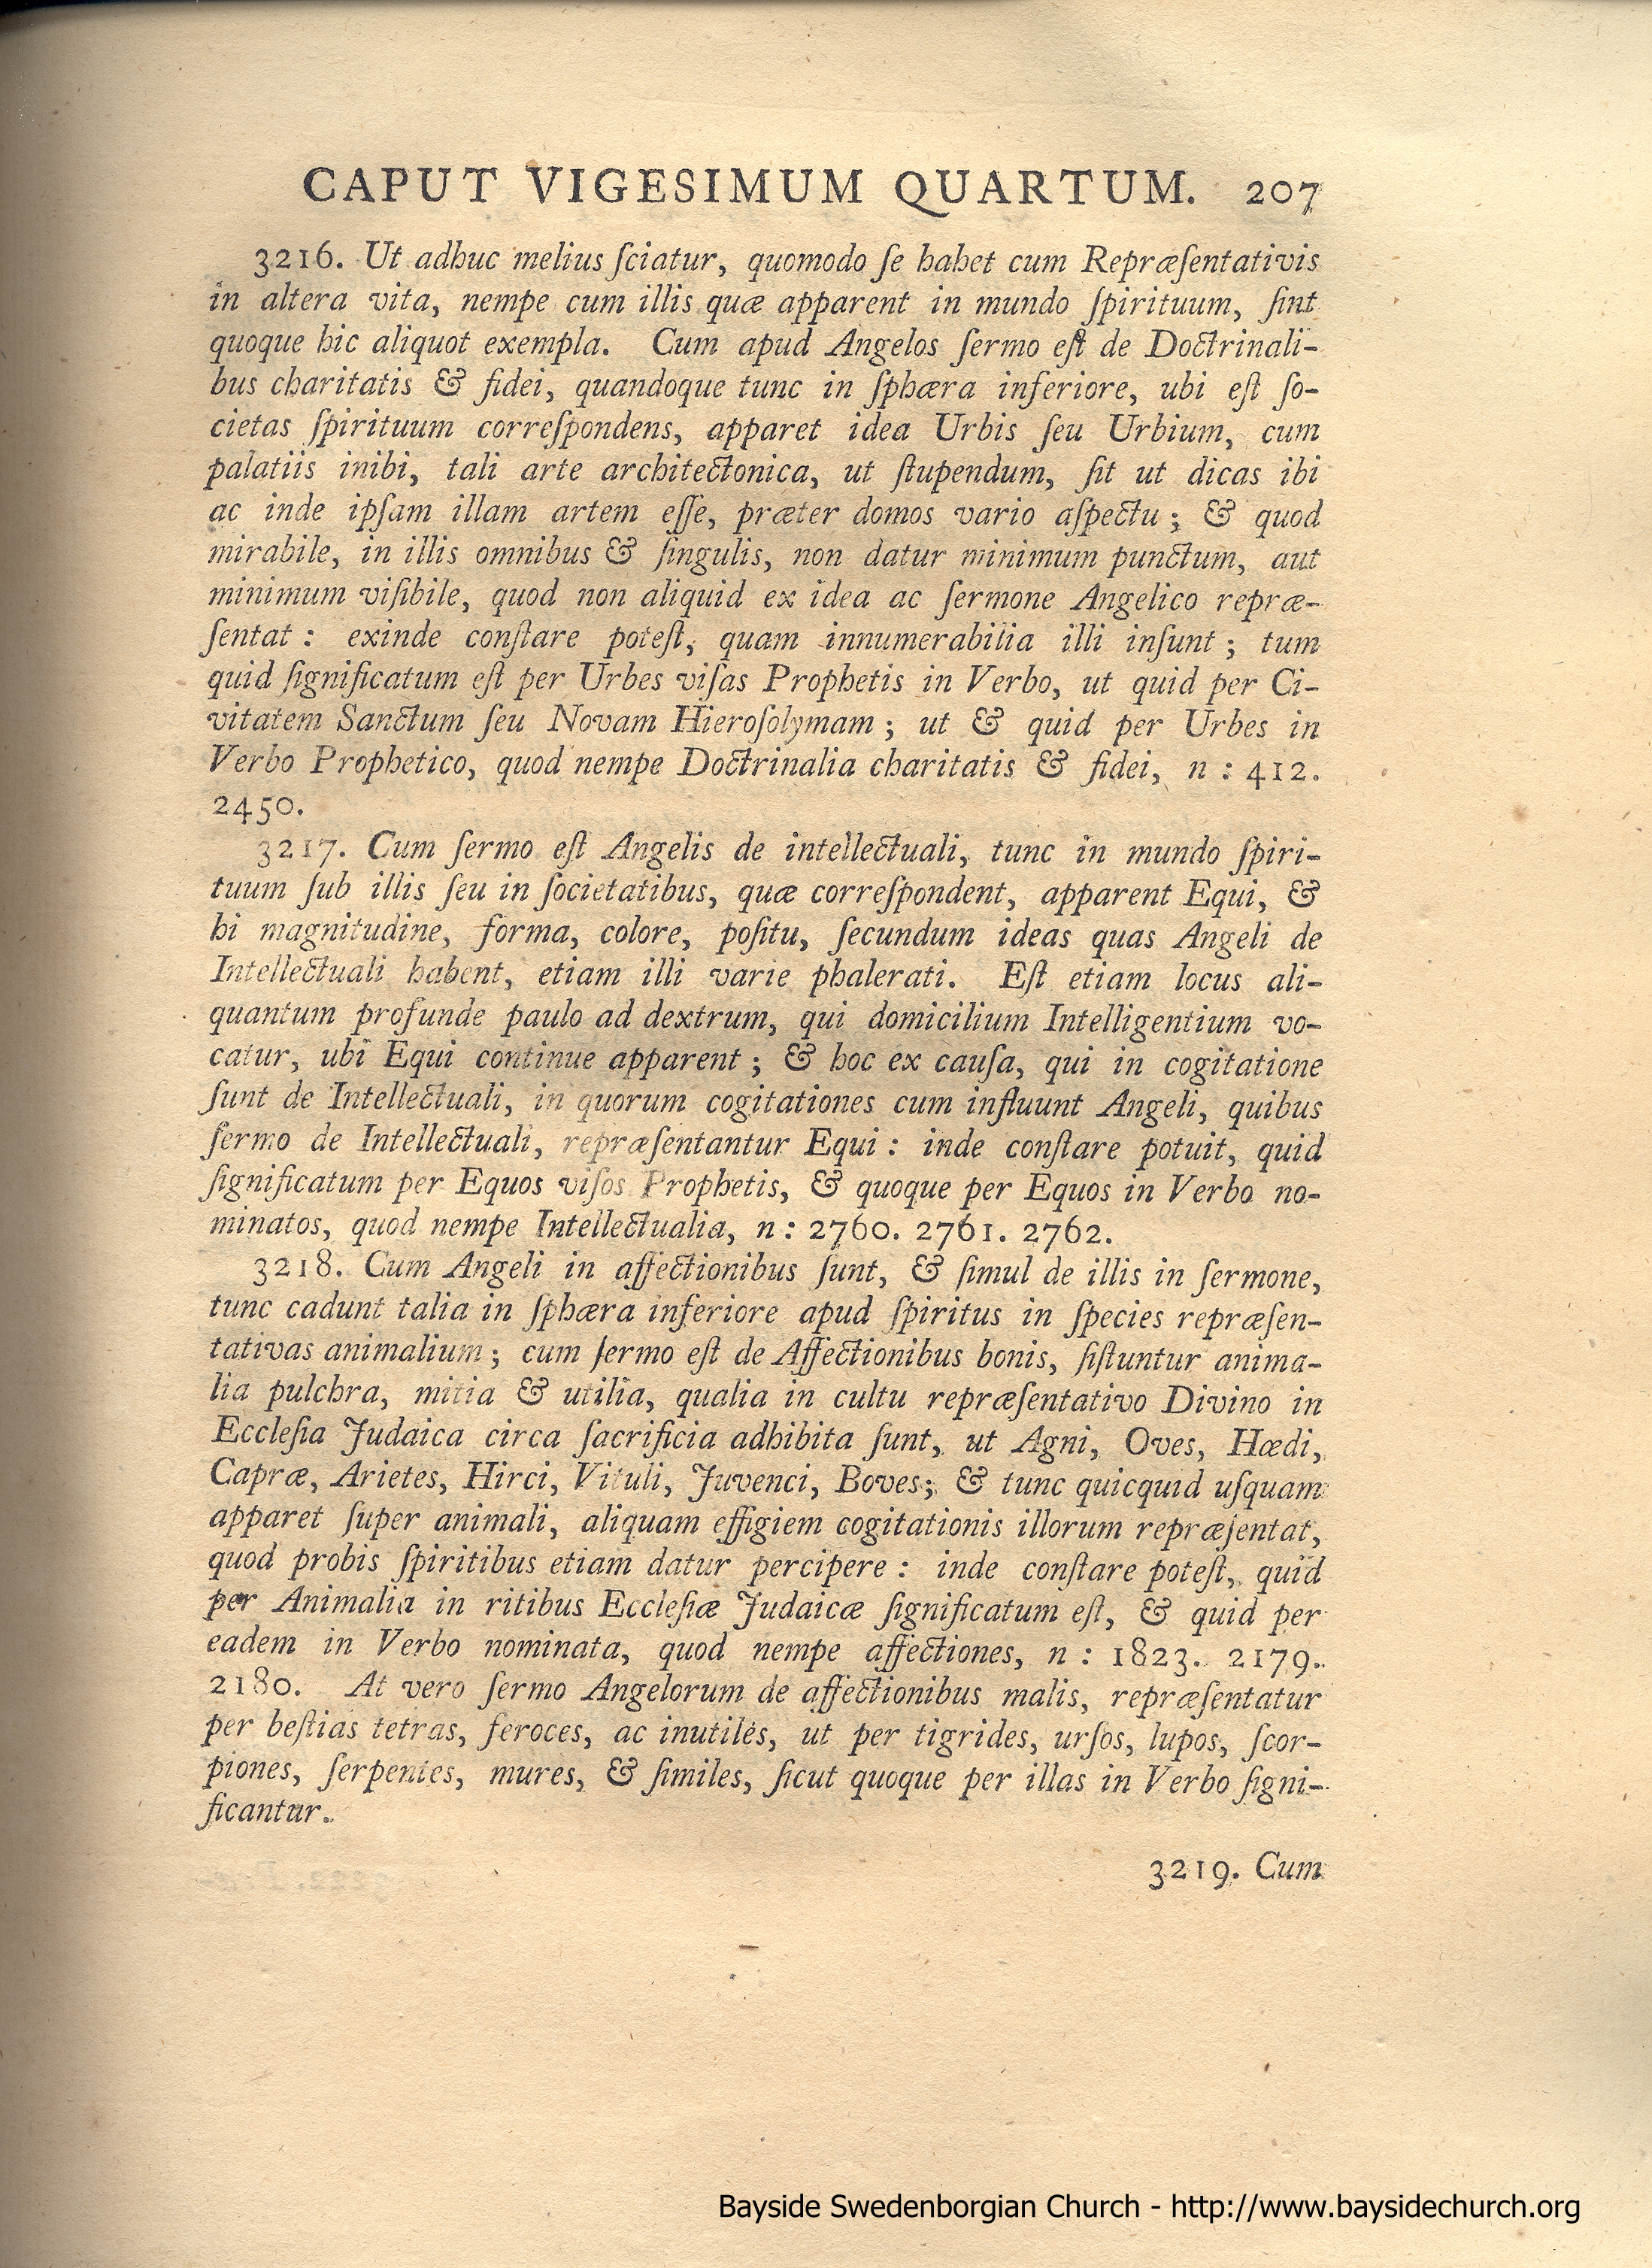 CAPUT VIGESIMUM QUARTUM. 207
3216. Ut adhuc melius ſciatur, quomodo ſe habet cum Repræſentativis
in altera vita, nempe cum illis quæ apparent in mundo ſpirituum, ſint
quoque hic aliquot exempla. Cum apud Angelos ſermo eſt de Doctrinali-
bus charitatis & fidei, quandoque tunc in ſphæra inferiore, ubi eſt ſo-
cietas ſpirituum correſpondens, apparet idea Urbis ſeu Urbium, cum
palatiis inibi, tali arte architectonica, ut ſtupendum, ſit ut dicas ibi
ac inde ipſam illam artem eſſe, præter domos vario aſpectu; & quod
mirabile, in illis omnibus & ſingulis, non datur minimum punctum, aut
minimum viſibile, quod non aliquid ex idea ac ſermone Angelico repræ-
ſentat: exinde conſtare poteſt, quam innumerabilia illi inſunt; tum
quid ſignificatum eſt per Urbes viſas Prophetis in Verbo, ut quid per Ci-
vitatem Sanctum ſeu Novam Hieroſolymam; ut & quid per Urbes in
Verbo Prophetico, quod nempe Doctrinalia charitatis & fidei, n: 412.
2450.
3217. Cum ſermo eſt Angelis de intellectuali, tunc in mundo ſpiri-
tuum ſub illis ſeu in ſocietatibus, quæ correſpondent, apparent Equi, &
hi magnitudine, forma, colore, poſitu, ſecundum ideas quas Angeli de
Intellectuali habent, etiam illi varie phalerati. Eſt etiam locus ali-
quantum profunde paulo ad dextrum, qui domicilium Intelligentium vo-
catur, ubi Equi continue apparent; & hoc ex cauſa, qui in cogitatione
ſunt de Intellectuali, in quorum cogitationes cum influunt Angeli, quibus
ſermo de Intellectuali, repræſentantur Equi: inde conſtare potuit, quid
ſignificatum per Equos viſos Prophetis, & quoque per Equos in Verbo no-
minatos, quod nempe Intellectualia, n: 2760. 2761. 2762.
3218. Cum Angeli in affectionibus ſunt, & ſimul de illis in ſermone,
tunc cadunt talia in ſphæra inferiore apud ſpiritus in ſpecies repræſen-
tativas animalium; cum ſermo eſt de Affectionibus bonis, ſiſtuntur anima-
lia pulchra, mitia & utilia, qualia in cultu repræſentativo Divino in
Eccleſia Judaica circa ſacrificia adhibita ſunt, ut Agni, Oves, Hœdi,
Capræ, Arietes, Hirci, Vituli, Juvenci, Boves; & tunc quicquid uſquam
apparet ſuper animali, aliquam effigiem cogitationis illorum repræſentat,
quod probis ſpiritibus etiam datur percipere: inde conſtare poteſt, quid
per Animalia in ritibus Eccleſiæ Judaicæ ſignificatum eſt, & quid per
eadem in Verbo nominata, quod nempe affectiones, n: 1823. 2179.
2180. At vero ſermo Angelorum de affectionibus malis, repræſentatur
per beſtias tetras, feroces, ac inutiles, ut per tigrides, urſos, lupos, ſcor-
piones, ſerpentes, mures, & ſimiles, ſicut quoque per illas in Verbo ſigni-
ficantur.
3219. Cum
Bayside Swedenborgian Church - http://www.baysidechurch.org